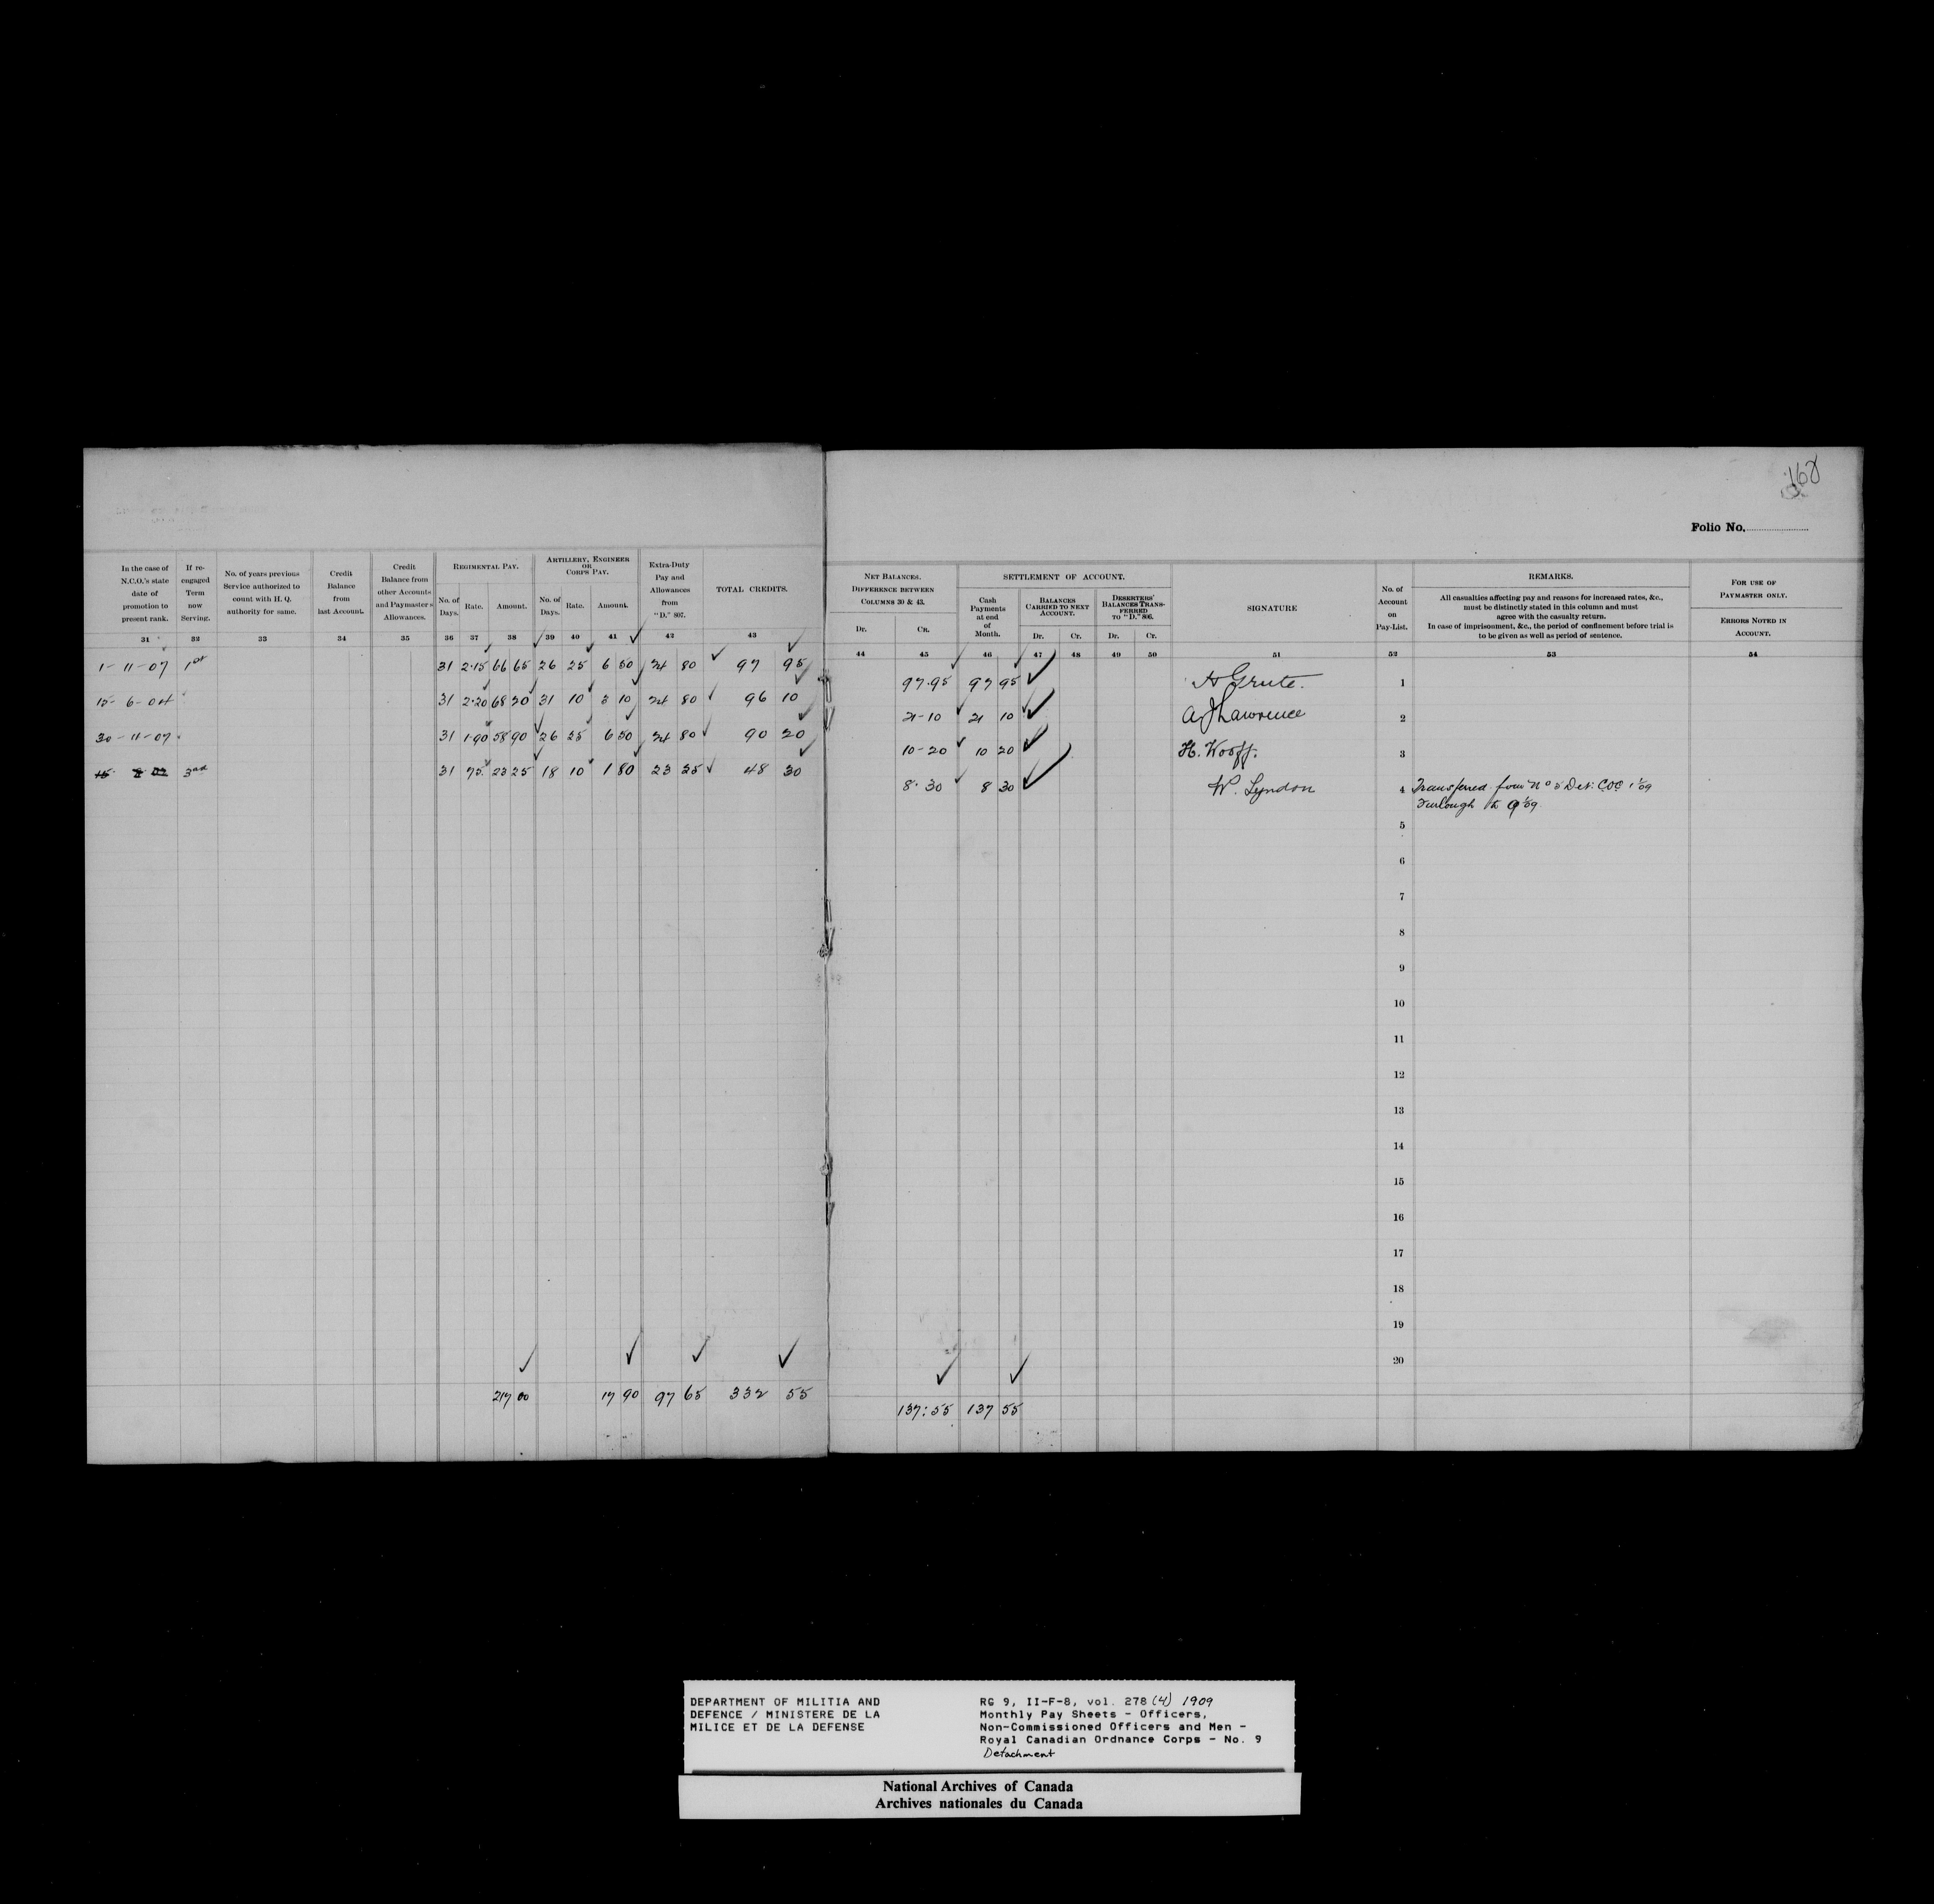 168
Folio No.
In the case of N.C.O.'s state date of promotion to present rank.
If re-engaged Term now Serving.
No. of years previous Service authorized to count with H. Q. authority for same.
Credit Balance from last Account.
Credit Balance from other Accounts and Paymaster's Allowances.
REGIMENTAL PAY.
No. of Days. Rate. Amount.
ARTILLERY, ENGINEER OR CORPS PAY.
No. of Days. Rate. Amount.
Extra-Duty Pay and Allowances from "D." 807.
TOTAL CREDITS.
31 32 33 34 35 36 37 38 39 40 41 42 43
1-11-07 1st 31 2.15 66 65 26 25 6 50 24 80 97 95
15-6-04 31 2.20 68 20 31 10 3 10 24 80 96 10
30-11-07 31 1.90 58 90 26 25 6 50 24 80 90 20
3rd 31 75 23 25 18 10 1 80 23 25 48 30
217 00 17 90 97 65 332 55
NET BALANCES.
DIFFERENCE BETWEEN COLUMNS 30 & 43.
Dr. CR.
SETTLEMENT OF ACCOUNT.
Cash Payments at end of Month.
BALANCES CARRIED TO NEXT ACCOUNT.
Dr. Cr.
DESERTERS' BALANCES TRANSFERRED TO "D." 806.
Dr. Cr.
SIGNATURE
No. of Account on Pay-List.
REMARKS.
All casualties affecting pay and reasons for increased rates, &c.,
must be distinctly stated in this column and must
agree with the casualty return.
In case of imprisonment, &c., the period of confinement before trial is
to be given as well as period of sentence.
FOR USE OF PAYMASTER ONLY.
ERRORS NOTED IN ACCOUNT.
44 45 46 47 48 49 50 51 52 53 54
97.95 97 95 H Grute. 1
21-10 21 10 A J Lawrence 2
10-20 10 20 H. Wooff. 3
8.30 8 30 W. Lyndon 4 Transferred from No 5 Det: COC 1/1/09
Furlough to 9/1/09
5
6
7
8
9
10
11
12
13
14
15
16
17
18
19
20
137:55 137 55
DEPARTMENT OF MILITIA AND
DEFENCE / MINISTERE DE LA
MILICE ET DE LA DEFENSE
RG 9, II-F-8, vol. 278 (4) 1909
Monthly Pay Sheets - Officers,
Non-Commissioned Officers and Men -
Royal Canadian Ordnance Corps - No. 9
Detachment
National Archives of Canada
Archives nationales du Canada